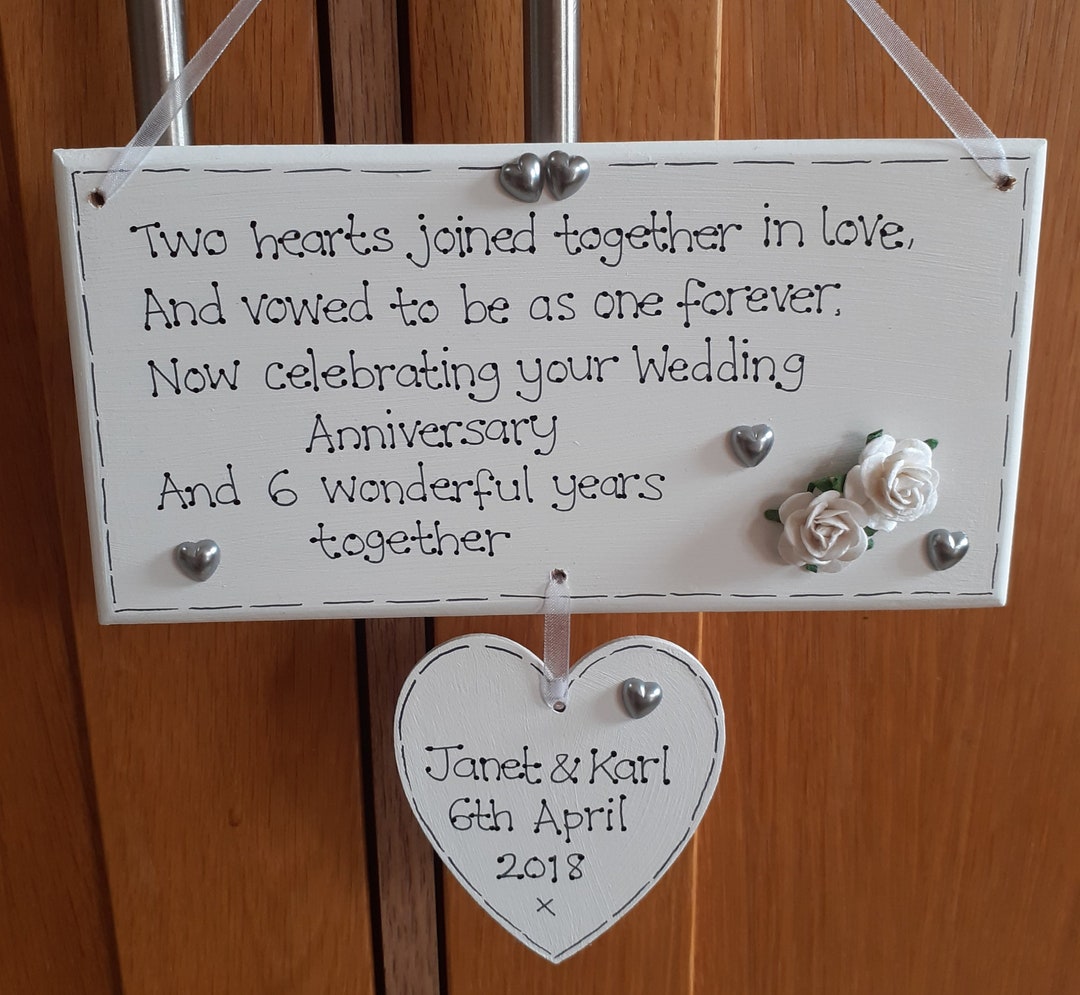 Two hearts joined together in love,
And vowed to be as one forever,
Now celebrating your Wedding
Anniversary
And 6 wonderful years
together
Janet & Karl
6th April
2018
x